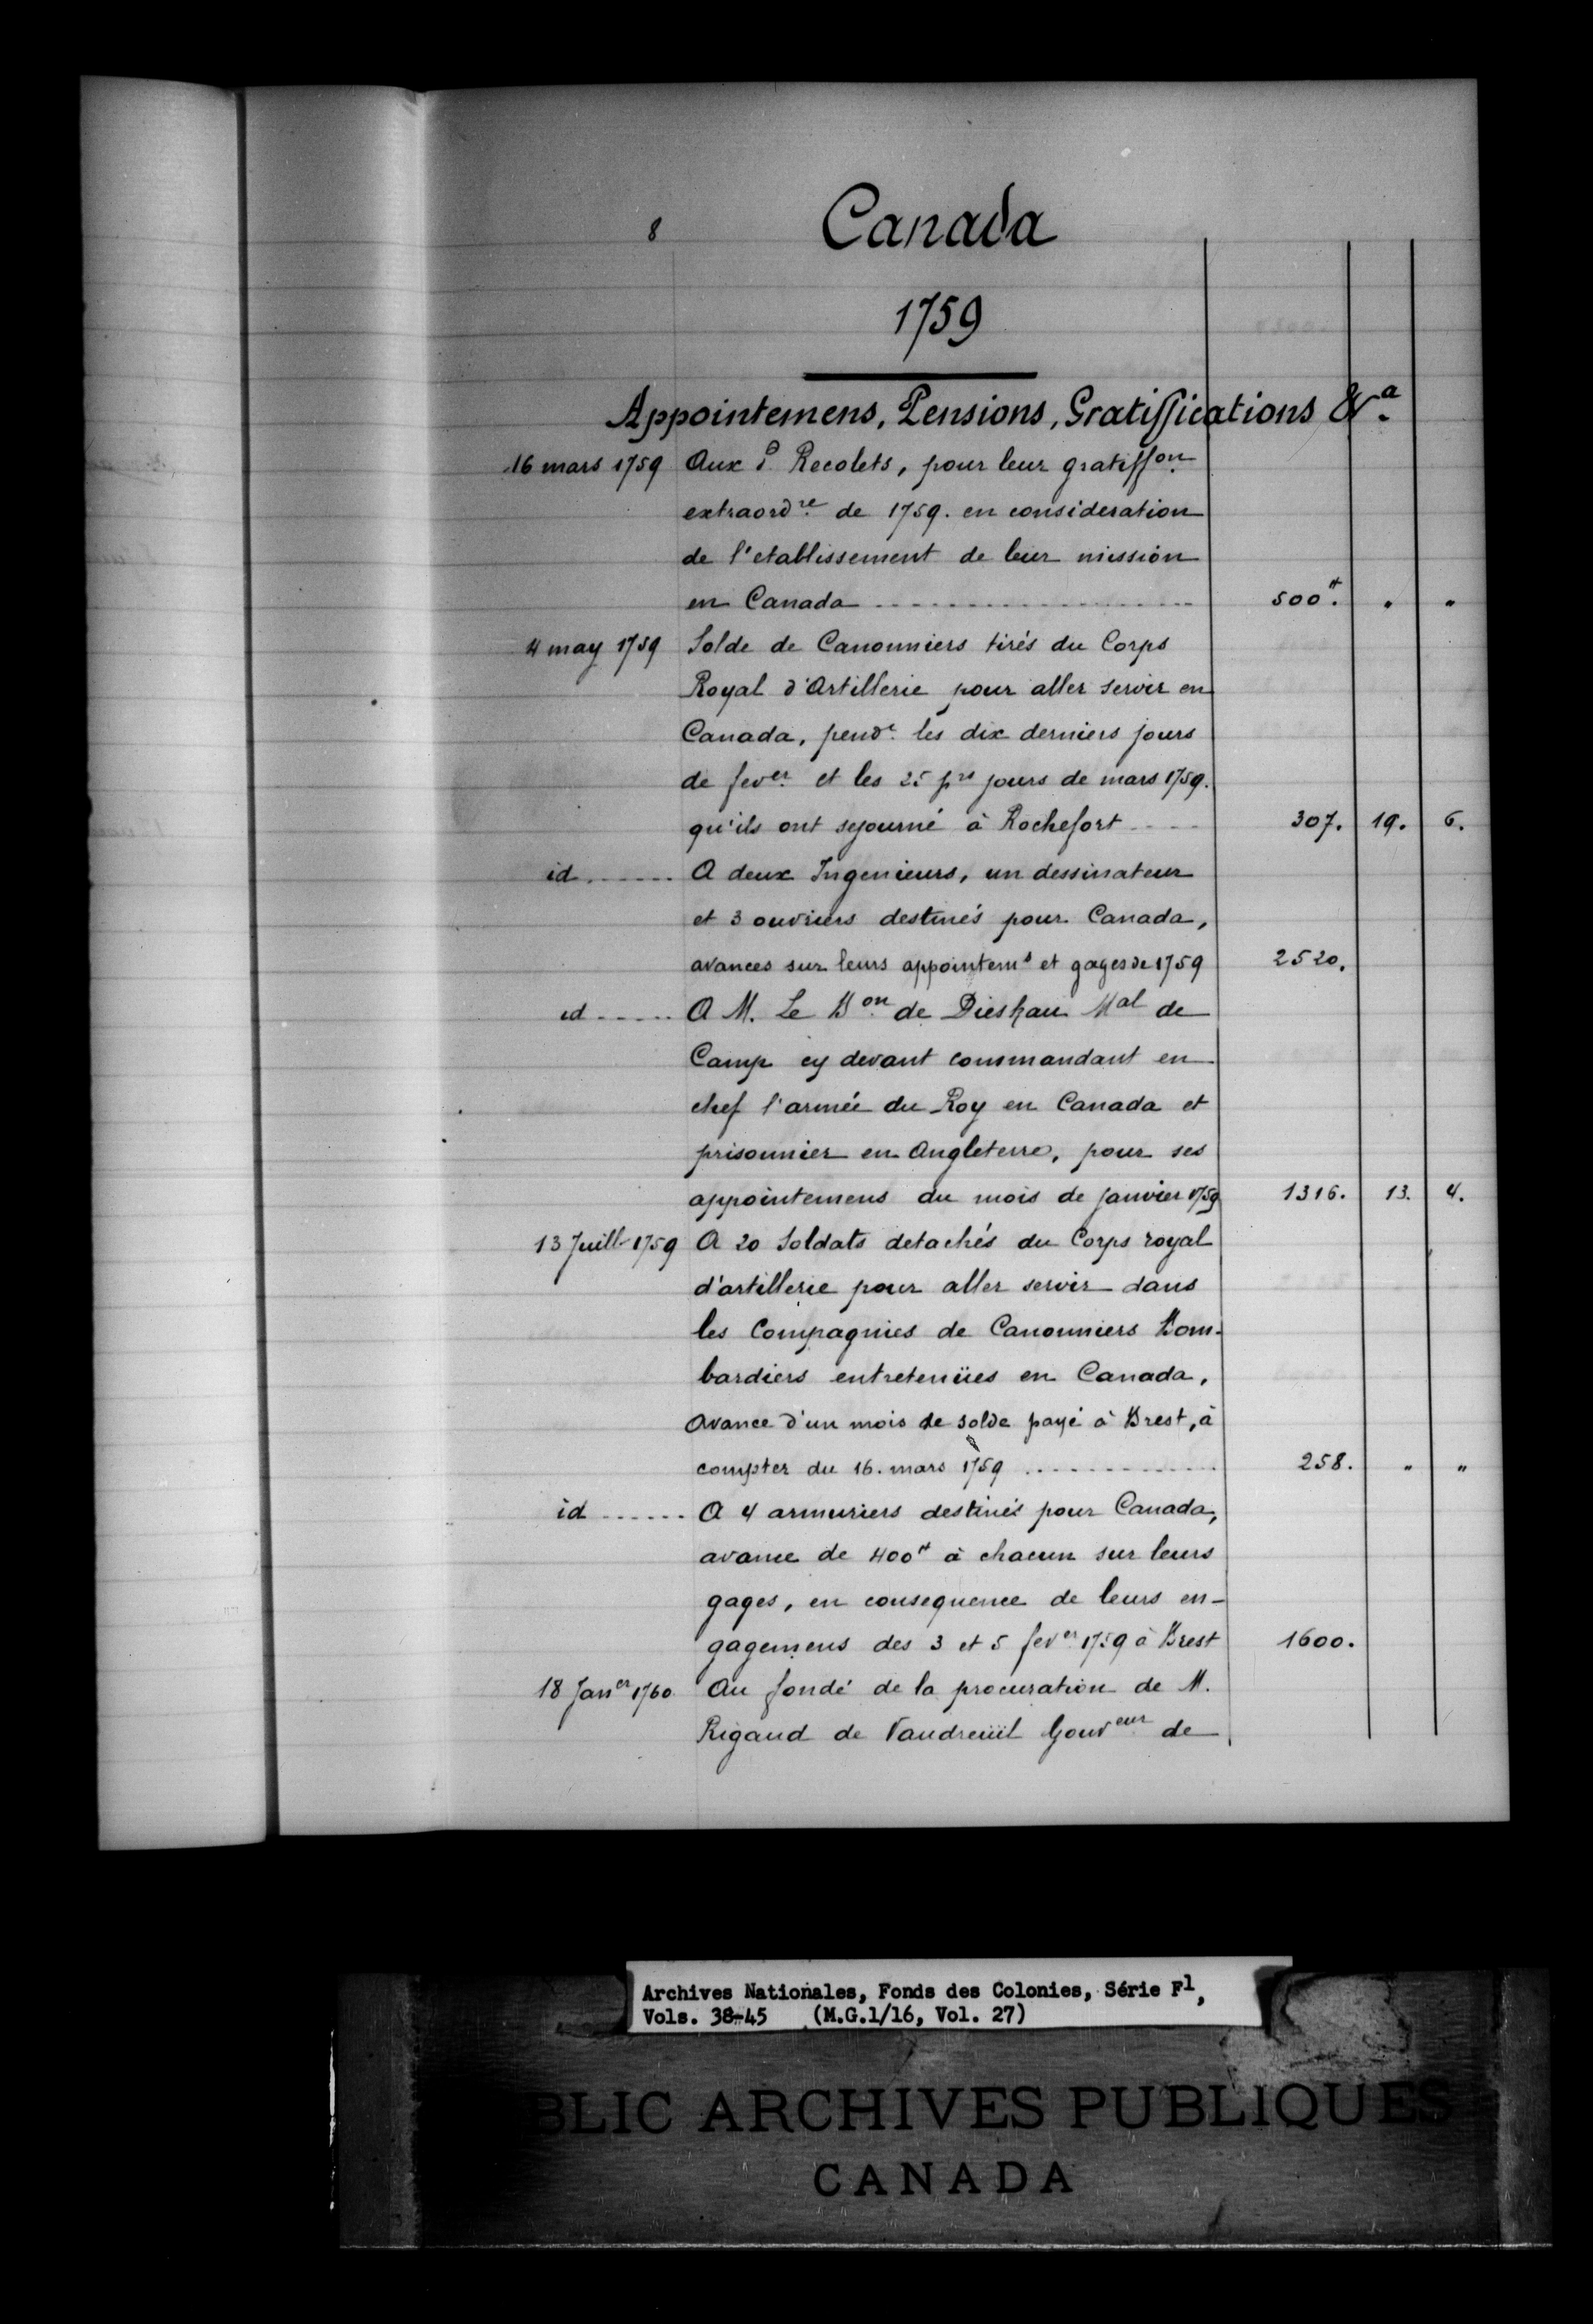 8
Canada
1759
Appointemens, Pensions, Gratiffications &a.
16 mars 1759 Aux P. Recolets, pour leur gratiffon.
extraordre. de 1759. en consideration
de l'etablissement de leur mission
en Canada .................... 500₶. " "
4 may 1759 Solde de Canonniers tirés du Corps
Royal d'Artillerie pour aller servir en
Canada, pendt. les dix derniers jours
de fever. et les 25 prs jours de mars 1759.
qu'ils ont sejourné à Rochefort .... 307. 19. 6.
id ...... A deux Ingenieurs, un dessinateur
et 3 ouvriers destinés pour Canada,
avances sur leurs appointems et gages de 1759 2520.
id ..... A M. Le Bon. de Dieskau Mal de
Camp cy devant commandant en
chef l'armée du Roy en Canada et
prisonnier en Angleterre, pour ses
appointemens du mois de janvier 1759 1316. 13. 4.
13 Juillt 1759 A 20 Soldats detachés du Corps royal
d'artillerie pour aller servir dans
les Compagnies de Canonniers Bom-
bardiers entretenües en Canada,
avance d'un mois de solde payé à Brest, à
compter du 16. mars 1759 ............ 258. " "
id ...... A 4 armuriers destinés pour Canada,
avance de 400₶ à chacun sur leurs
gages, en consequence de leurs en-
gagemens des 3 et 5 fever 1759 à Brest 1600.
18 Janer 1760 Au fondé de la procuration de M.
Rigaud de Vaudreüil Gouveur de
Archives Nationales, Fonds des Colonies, Série F1,
Vols. 38-45 (M.G.1/16, Vol. 27)
BLIC ARCHIVES PUBLIQUES
CANADA